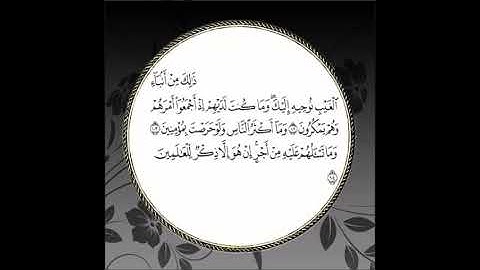 ذَٰلِكَ مِنْ أَنۢبَآءِ
ٱلْغَيْبِ نُوحِيهِ إِلَيْكَ ۖ وَمَا كُنتَ لَدَيْهِمْ إِذْ أَجْمَعُوٓا۟ أَمْرَهُمْ
وَهُمْ يَمْكُرُونَ ١٠٢ وَمَآ أَكْثَرُ ٱلنَّاسِ وَلَوْ حَرَصْتَ بِمُؤْمِنِينَ ١٠٣
وَمَا تَسْـَٔلُهُمْ عَلَيْهِ مِنْ أَجْرٍ ۚ إِنْ هُوَ إِلَّا ذِكْرٌ لِّلْعَٰلَمِينَ
١٠٤